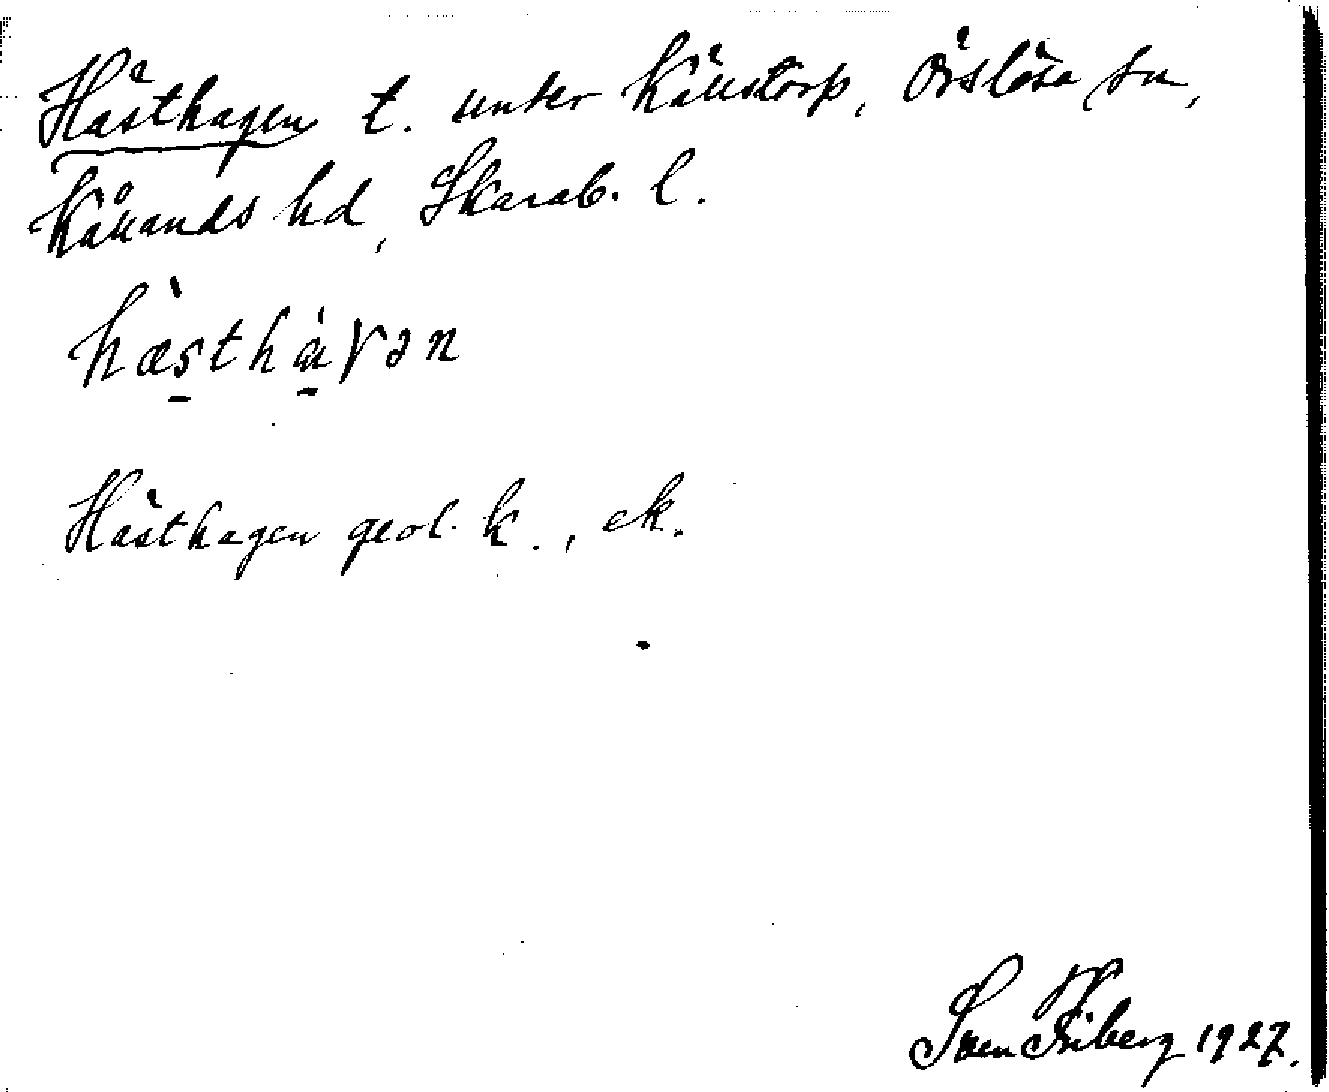 Hästhagen t. under Källstorp, Örslösa sn,
Kållands hd, Skarab. l.
hæsthaγən
Hästhagen geol. k., ek.
Sven Friberg 1927.